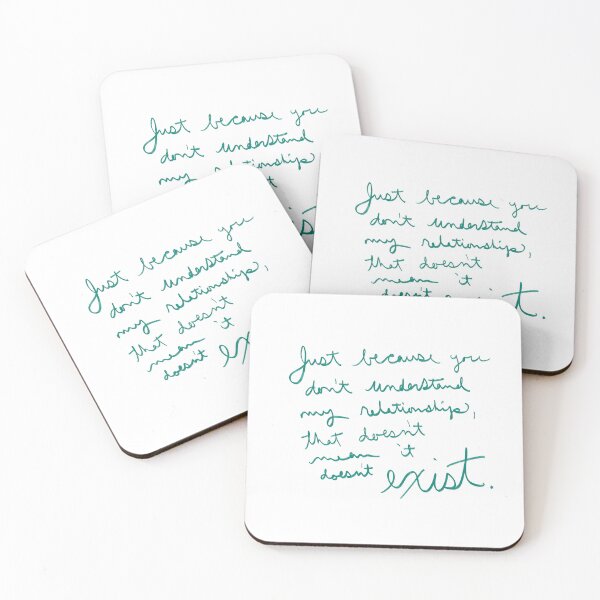 Just because you
don't understand
my relationship,
Just because you
don't understand
my relationship,
that doesn't
mean it
doesn't
Just because you
don't understand
my relationship,
that doesn't
mean it
doesn't
Just because you
don't understand
my relationship,
that doesn't
mean it
doesn't exist.